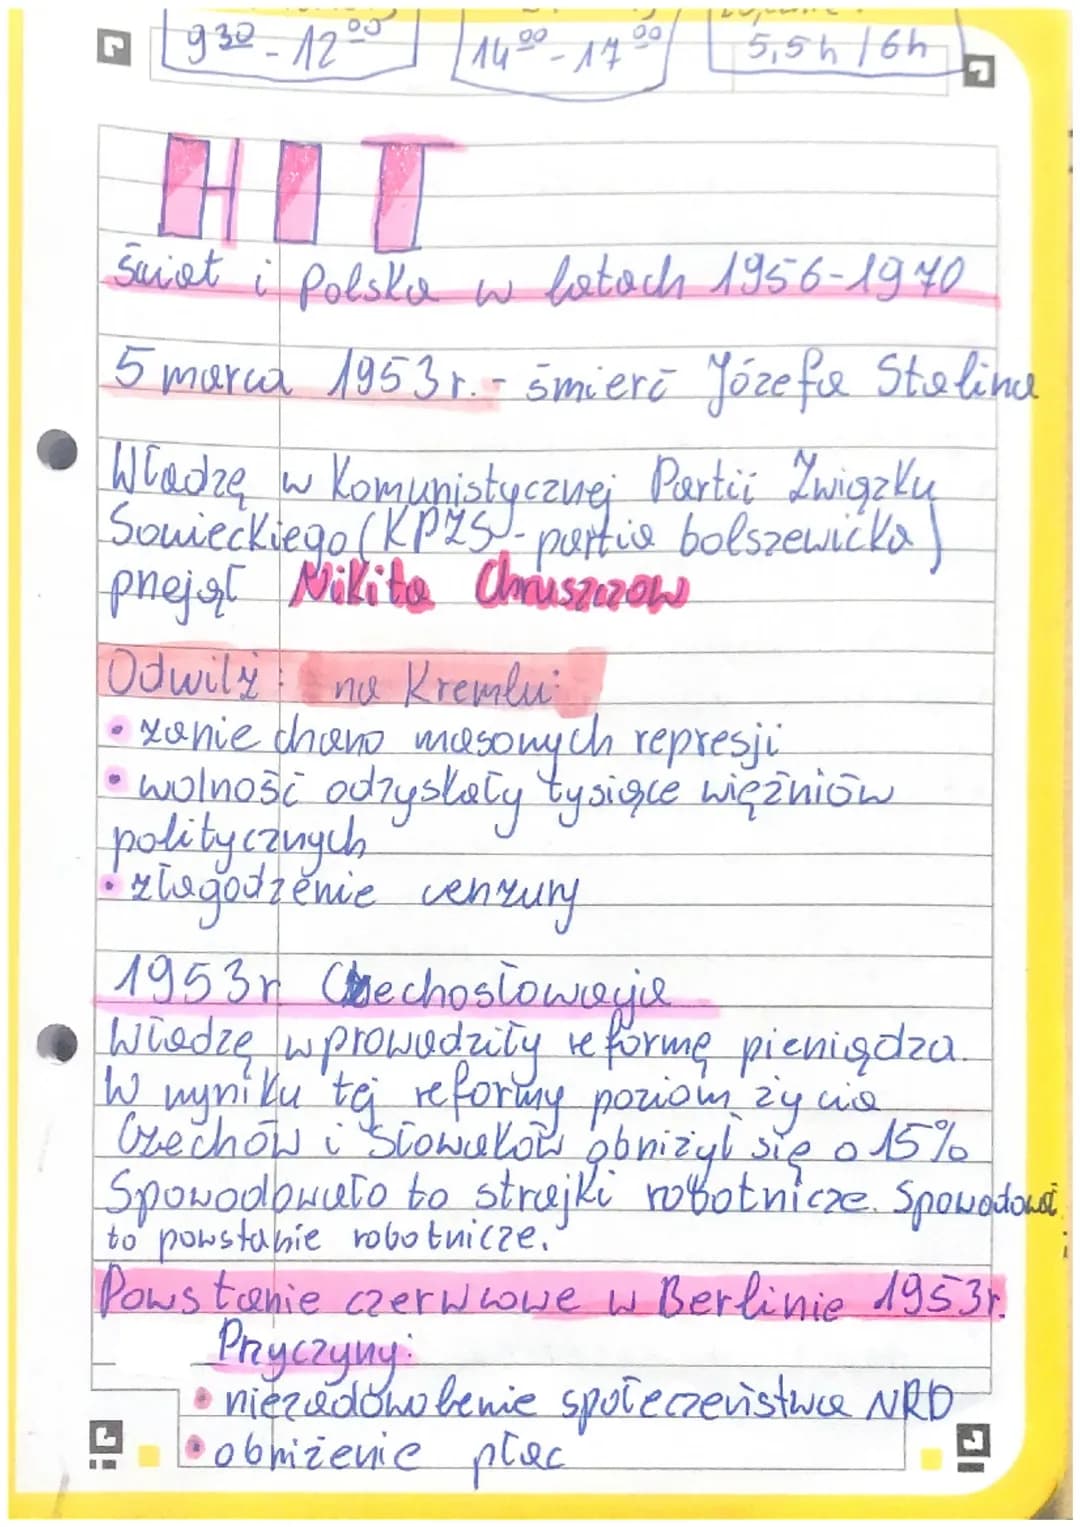 9³⁰ - 12⁰⁰ 14⁰⁰ - 17⁰⁰ 5,5h / 6h
HIT
Świat i Polska w latach 1956-1970
5 marca 1953r. - śmierć Józefa Stalina
Władzę w Komunistycznej Partii Związku
Sowieckiego (KPZS - partia bolszewicka)
przejął Nikita Chruszczow
Odwilż : na Kremlu:
• zaniechano masowych represji
• wolność odzyskały tysiące więźniów
politycznych
• złagodzenie cenzury
1953r Czechosłowacja
Władzę wprowadziły reformę pieniądza.
W wyniku tej reformy poziom życia
Czechów i Słowaków obniżył się o 15%
Spowodowało to strajki robotnicze. Spowodował
to powstanie robotnicze.
Powstanie czerwcowe w Berlinie 1953r.
Przyczyny:
• niezadowolenie społeczeństwa NRD
• obniżenie płac